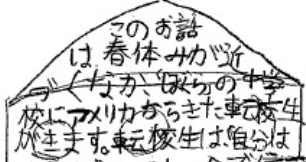 このお話
は春体みが近
づくなか、ぼらの中学
校にアメリカからきた転校生
がきます。転校生は「自分は